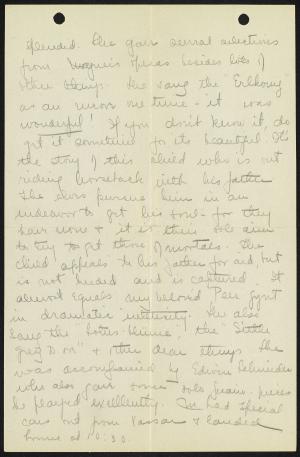 splendid. She gave several selections
from Wagner's operas besides lots of
other things. She sang the "Erlkönig"
as an encore one time - it was
wonderful! If you don't know it, do
get it sometime for its beautiful. It's
the story of this child who is out
riding horseback with his father
The elves pursue him in an
endeavor to get his soul - for they
have none & it is their sole aim
to try to get those of mortals. The
child appeals to his father for aid, but
is not heeded and is captured. It
almost equals my beloved "Peer Gynt
in dramatic intensity. She also
sang the "Lotus-blume", the "Little
grey D. on" & other dear things. She
was accompanied by Edwin Schneider
who also gave some solo piano-pieces
he played excellently. We had special
cars out from Vassar & landed
home at 10:30.